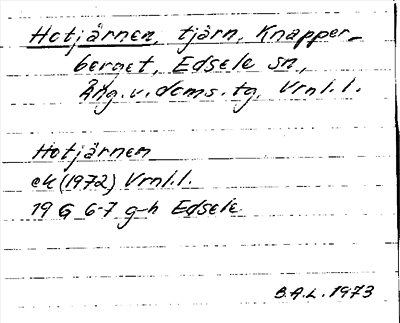 Hotjärnen, tjärn, Knapper-
berget, Edsele sn,
Ång.v.doms.tg, Vrnl.l.
Hotjärnen
ek (1972) Vrnl.l.
19 G 6-7 g-h Edsele
B.A.L. 1973